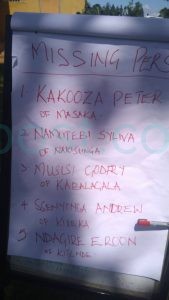 MISSING PERS
1 KAKOOZA PETER
OF MASAKA
2 NAMUTEBI SYLIVA
OF NAKISUNGA
3 MUSISI GODFRY
OF KABALAGALA
4 SSENYONGA ANDREW
OF KISEKA
5 NDAGIRE EROON
OF KISENDE